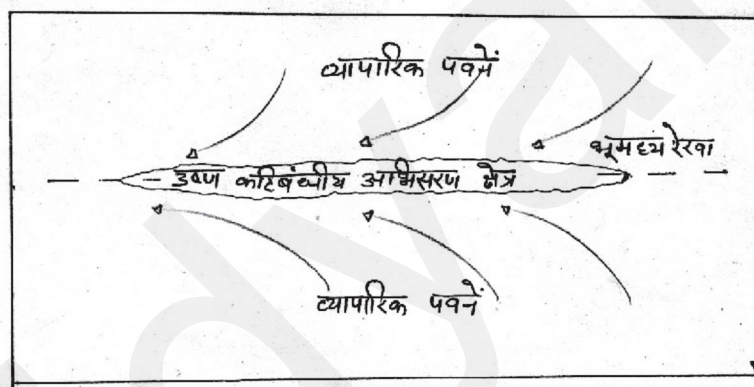 व्यापारिक पवनें
भूमध्य रेखा
उष्ण कटिबंधीय अभिसरण क्षेत्र
व्यापारिक पवनें